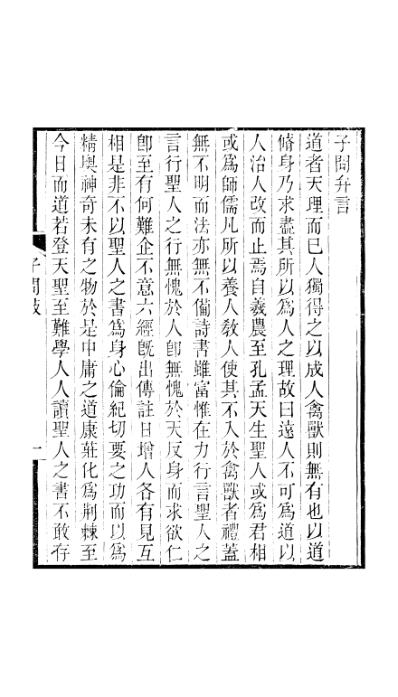 子問弁言
道者天理而已人獨得之以成人禽獸則無有也以道
脩身乃求盡其所以為人之理故曰遠人不可為道以
人治人改而止焉自羲農至孔孟天生聖人或為君相
或為師儒凡所以養人敎人使其不入於禽獸者禮蓋
無不明而法亦無不僃詩書雖富惟在力行言聖人之
言行聖人之行無愧於人卽無愧於天反身而求欲仁
卽至有何難企不意六經旣出傳註日增人各有見互
相是非不以聖人之書為身心倫紀切要之功而以為
精奧神奇未有之物於是中庸之道康莊化為荆棘至
今日而道若登天聖至難學人人讀聖人之書不敢存
子問
一